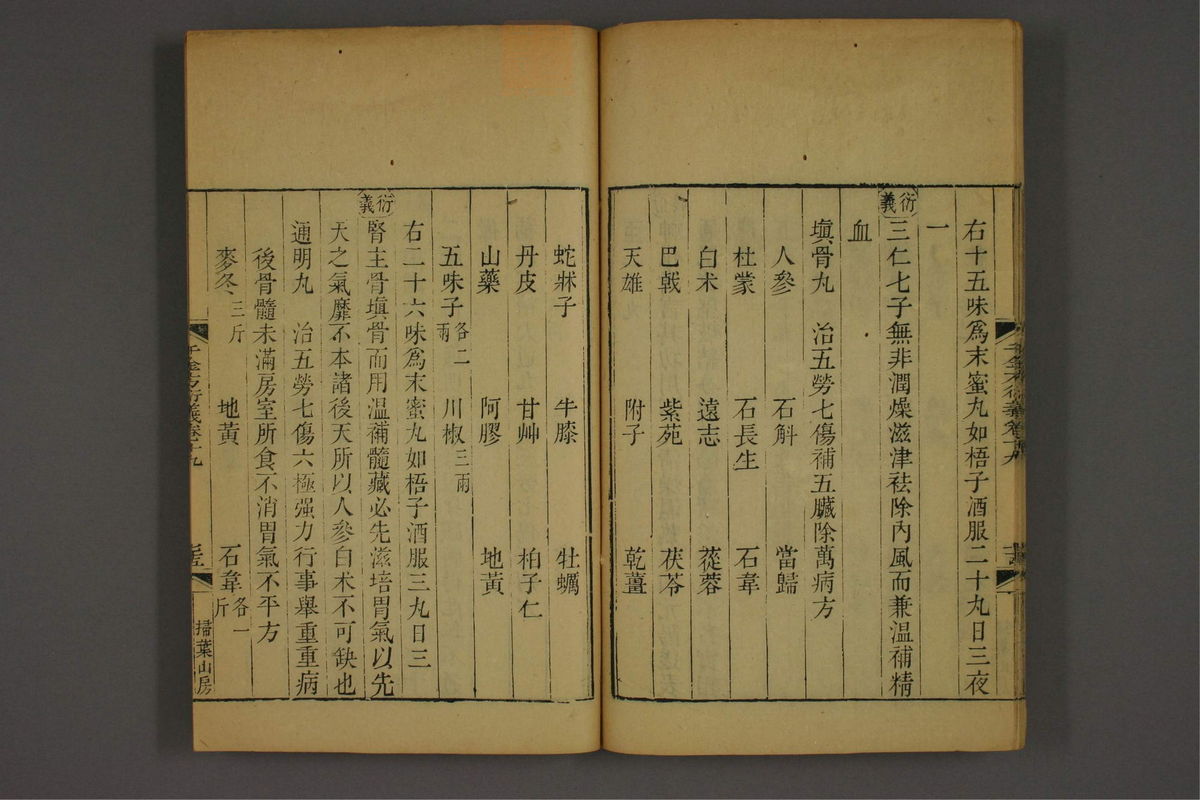 右十五味爲末蜜丸如梧子酒服二十丸日三夜
一
衍義
三仁七子無非潤燥滋津袪除內風而兼温補精
血
塡骨丸 治五勞七傷補五臟除萬病方
人參 石斛 當歸
杜蒙 石長生 石韋
白术 遠志 蓯蓉
巴戟 紫苑 茯苓
天雄 附子 乾薑
蛇牀子 牛膝 牡蠣
丹皮 甘艸 柏子仁
山藥 阿膠 地黃
五味子各二兩 川椒三兩
右二十六味爲末蜜丸如梧子酒服三丸日三
衍義
腎主骨塡骨而用温補髓藏必先滋培胃氣以先
天之氣靡不本諸後天所以人參白术不可缺也
通明丸 治五勞七傷六極强力行事舉重重病
後骨髓未滿房室所食不消胃氣不平方
麥冬三斤 地黃 石韋各一斤
千金方衍義卷十九
掃葉山房